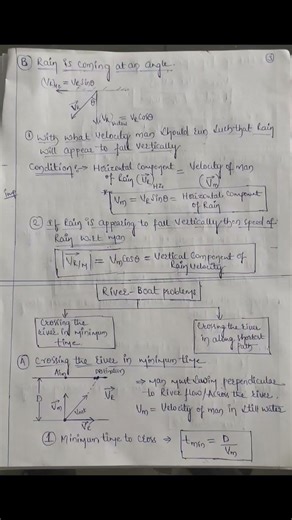 (B) Rain is coming at an angle.
(VR)Hz = VR sinθ
θ
VR
(VR)Vertical = VR cosθ
(1) With what velocity man should run such that Rain
will appear to fall vertically
Condition → Horizontal component = Velocity of man
of Rain (VR)Hz (Vm)
Vm = VR sinθ = Horizontal component
of Rain
(2) If Rain is appearing to fall vertically then speed of
Rain w.r.t man
|VR/M| = Vm cosθ = Vertical component of
Rain velocity
River-Boat problems
Crossing the
river in minimum
time
Crossing the river
in along shortest
path
(A) Crossing the river in minimum-time
Aim
Destination
D
Vm
VR
Vr
⇒ Man must swim perpendicular
to River flow/Across the river.
Vm = Velocity of man in still water
(1) Minimum time to cross ⇒ tmin = D/Vm